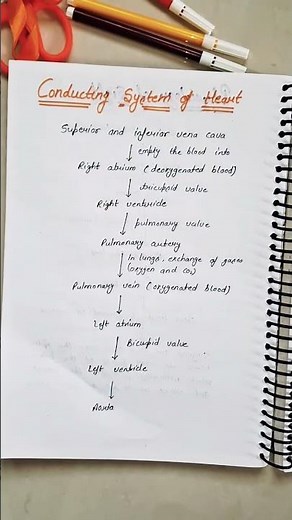 Conducting System of Heart
Superior and inferior vena cava
empty the blood into
Right atrium (deoxygenated blood)
tricuspid valve
Right ventricle
pulmonary valve
Pulmonary artery
in lungs, exchange of gases
(oxygen and CO₂)
Pulmonary vein (oxygenated blood)
Left atrium
Bicuspid valve
Left ventricle
Aorta